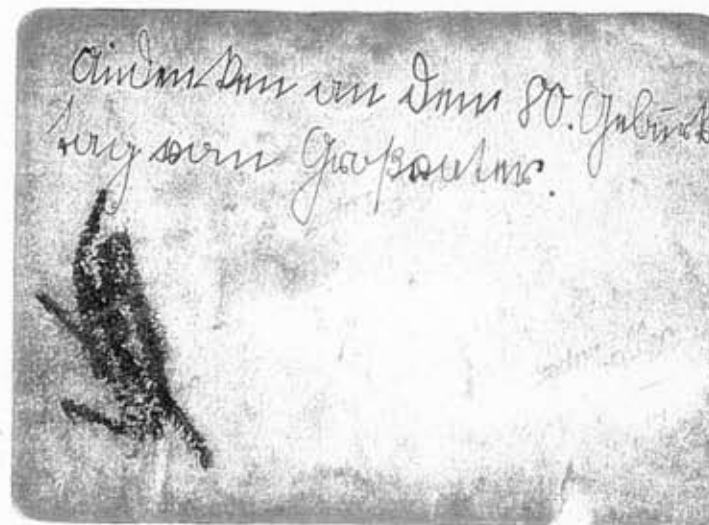 Andenken an dem 80. Geburts
tag vom Großvater.